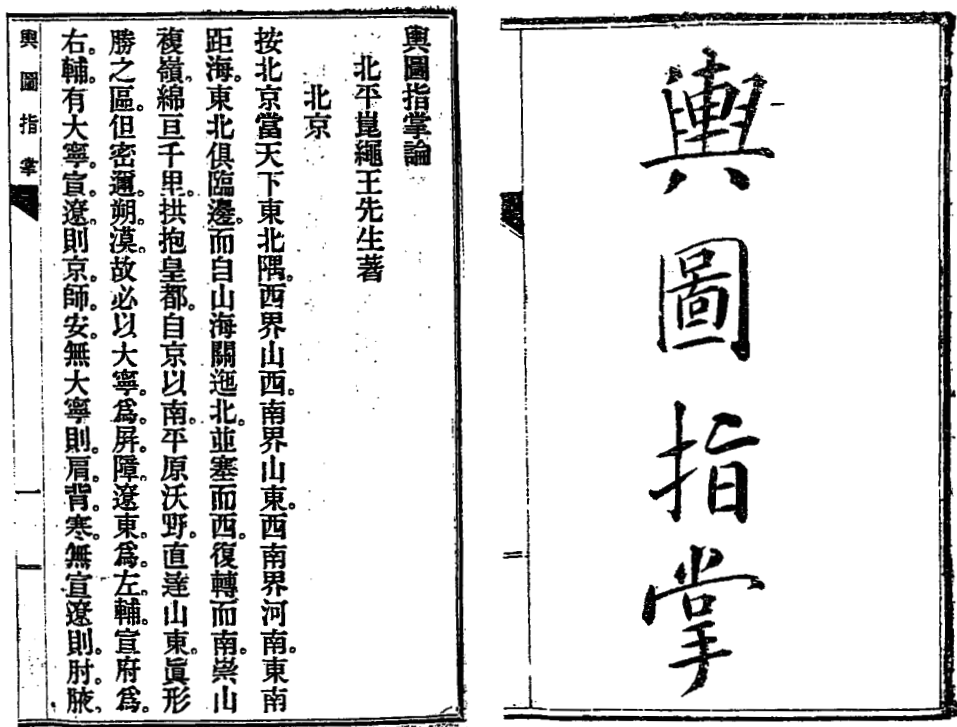 輿圖指掌
輿圖指掌論
北平崑繩王先生著
北京
按北京當天下東北隅。西界山西。南界山東。西南界河南。東南
距海。東北俱臨邊。而自山海關迤北。並塞而西。復轉而南。崇山
複嶺。綿亘千里。拱抱皇都。自京以南。平原沃野。直達山東。眞形
勝之區。但密邇。朔。漠。故必以大寧。爲。屏。障。遼東。爲。左。輔。宣府爲。
右。輔。有大寧。宣。遼。則京。師。安。無大寧則。肩。背。寒。無宣遼則。肘。腋、
輿圖指掌
一
一